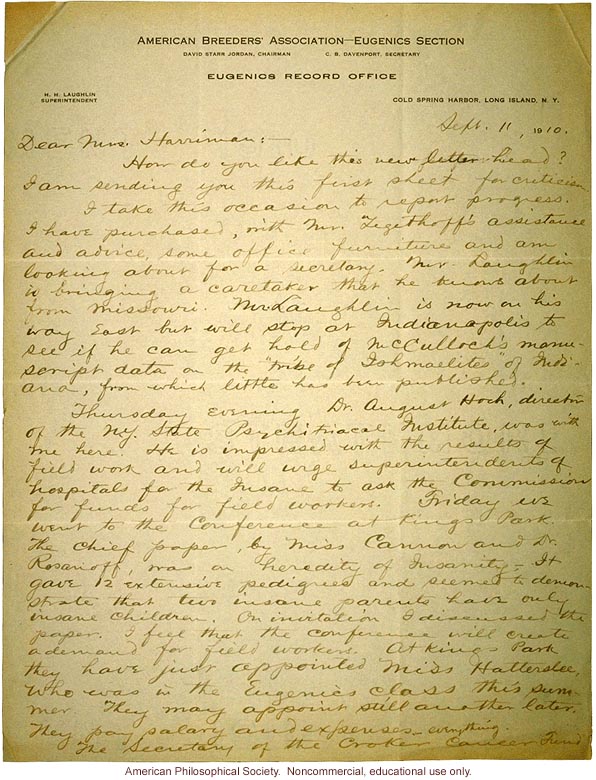 AMERICAN BREEDERS' ASSOCIATION—EUGENICS SECTION
DAVID STARR JORDAN, CHAIRMAN C. B. DAVENPORT, SECRETARY
EUGENICS RECORD OFFICE
H. H. LAUGHLIN
SUPERINTENDENT
COLD SPRING HARBOR, LONG ISLAND, N. Y.
Sept. 11, 1910.
Dear Mrs. Harriman:—
How do you like this new letter-head?
I am sending you this first sheet for criticism.
I take this occasion to report progress.
I have purchased, with Mr. Tegethoff's assistance
and advice, some office furniture and am
looking about for a secretary. Mr. Laughlin
is bringing a caretaker that he knows about
from Missouri. Mr Laughlin is now on his
way East but will stop at Indianapolis to
see if he can get hold of McCulloch's manu-
script data on the "tribe of Ishmaelites" of Indi-
ana, from which little has been published.
Thursday evening Dr. August Hoch, director
of the N.Y. State Psychitriacal Institute, was with
me here. He is impressed with the results of
field work and will urge superintendents of
hospitals for the Insane to ask the Commission
for funds for field workers. Friday we
went to the Conference at Kings Park.
The chief paper, by Miss Cannon and Dr.
Rosanoff, was on heredity of Insanity – It
gave 12 extensive pedigrees and seemed to demon-
strate that two insane parents have only
insane children. On invitation I discussed the
paper. I feel that the conference will create
a demand for field workers. At Kings Park
they have just appointed Miss Hatterslee,
who was in the Eugenics class this sum-
mer. They may appoint still another later.
They pay salary and expenses – everything.
The Secretary of the Croker Cancer Fund
American Philosophical Society. Noncommercial, educational use only.